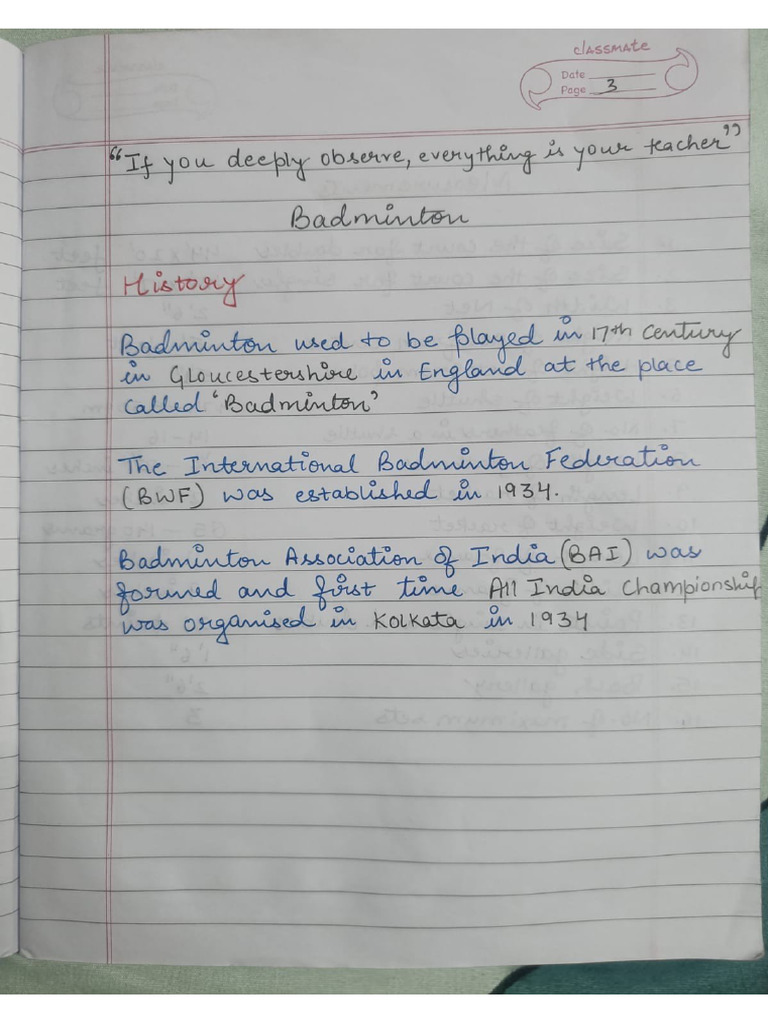 classmate
Date
Page 3
"If you deeply observe, everything is your teacher"
Badminton
History
Badminton used to be played in 17th century
in Gloucestershire in England at the place
called 'Badminton'
The International Badminton Federation
(BWF) was established in 1934.
Badminton Association of India (BAI) was
formed and first time All India Championship
was organised in Kolkata in 1934